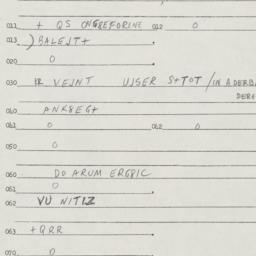 011 + QS 012 0
013 ) BALEJT+
020 0
030 VEJNT UJSER S+TOT / IN A DERB
DERE
040 ANK8EG+
041 0 062 0
050 0
060 DO ARUM ERG8IC
061 0
062 VU NITIZ
063 +QRR
070 0